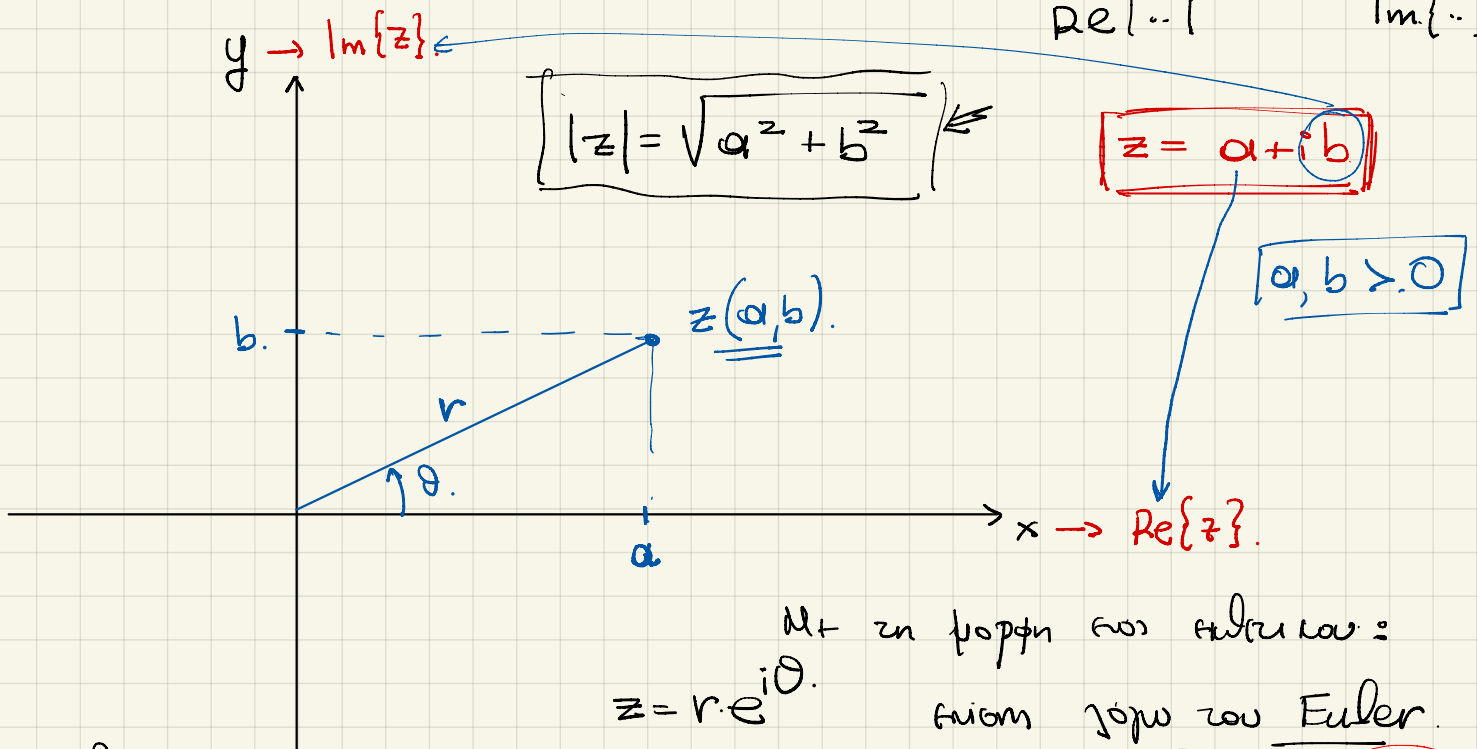 Re{..} Im{..
y → Im{z}.
|z| = √a² + b²
z = a + ib
a, b > 0
z(a,b).
b.
r
θ.
a
x → Re{z}.
Με τη μορφη ενος εκθετικου:
z = r·e^{iθ}.
επιση λόγω του Euler.